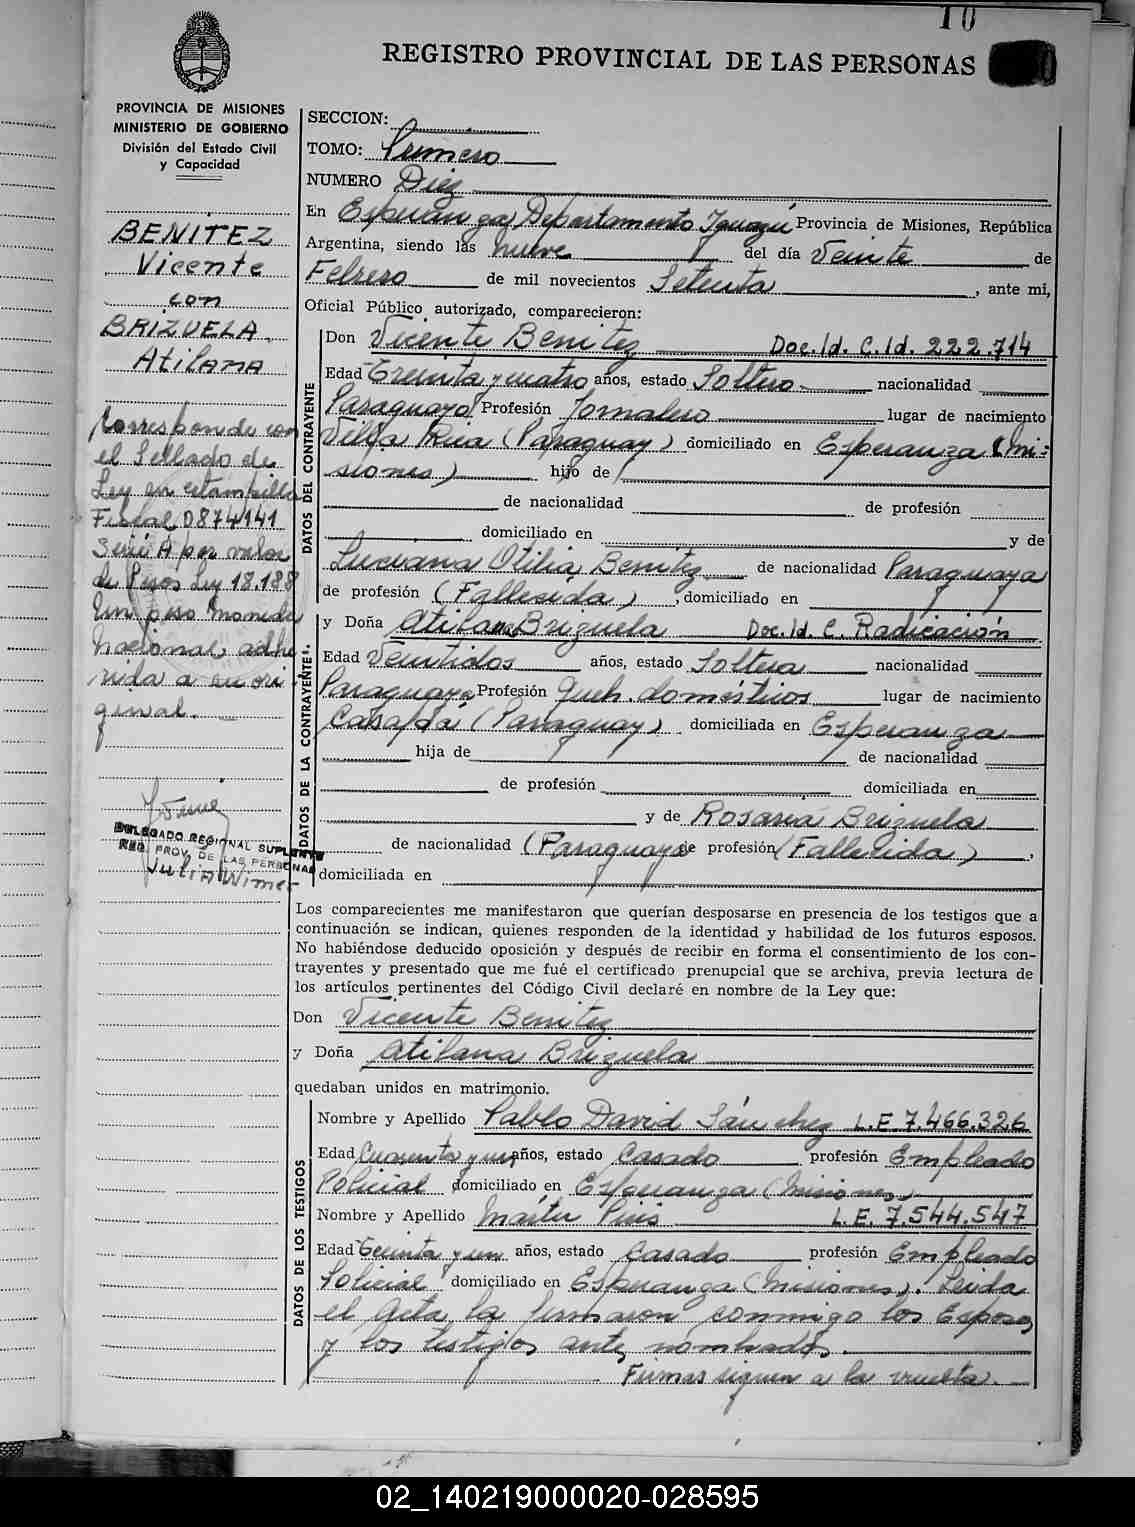 10
REGISTRO PROVINCIAL DE LAS PERSONAS
PROVINCIA DE MISIONES
MINISTERIO DE GOBIERNO
División del Estado Civil
y Capacidad
BENITEZ
Vicente
con
BRIZUELA
Atilana
Corresponde con
el Sellado de
Ley en estampilla
Fiscal 0874141
Serie A por valor
de Pesos Ley 18.188
Un peso moneda
Nacional, adhe
rida a su ori-
ginal.
DELEGADO REGIONAL SUPLENTE
REG. PROV. DE LAS PERSONAS
SECCION:
TOMO: Primero
NUMERO Diez
En Esperanza, Departamento Iguazú Provincia de Misiones, República
Argentina, siendo las nueve del día Veinte de
Febrero de mil novecientos Setenta, ante mi,
Oficial Público autorizado, comparecieron:
DATOS DEL CONTRAYENTE
Don Vicente Benitez Doc. Id. C. Id. 222.714
Edad Treinta y cuatro años, estado Soltero nacionalidad
Paraguayo Profesión Jornalero lugar de nacimiento
Villa Rica (Paraguay) domiciliado en Esperanza (Mi-
siones) hijo de
de nacionalidad de profesión
domiciliado en y de
Luciana Otilia Benitez de nacionalidad Paraguaya
de profesión (Fallecida), domiciliado en
DATOS DE LA CONTRAYENTE
y Doña Atilana Brizuela Doc. Id. C. Radicación
Edad Veintidos años, estado Soltera nacionalidad
Paraguaya Profesión Queh. domésticos lugar de nacimiento
(Paraguay) domiciliada en Esperanza
hija de de nacionalidad
de profesión domiciliada en
y de Rosaria Brizuela
de nacionalidad (Paraguaya de profesión (Fallecida),
domiciliada en
Los comparecientes me manifestaron que querían desposarse en presencia de los testigos que a
continuación se indican, quienes responden de la identidad y habilidad de los futuros esposos.
No habiéndose deducido oposición y después de recibir en forma el consentimiento de los con-
trayentes y presentado que me fué el certificado prenupcial que se archiva, previa lectura de
los artículos pertinentes del Código Civil declaré en nombre de la Ley que:
Don Vicente Benitez
y Doña Atilana Brizuela
quedaban unidos en matrimonio.
DATOS DE LOS TESTIGOS
Nombre y Apellido Pablo David Sánchez L.E. 7.466.326
Edad Cuarenta y un años, estado Casado profesión Empleado
Policial domiciliado en Esperanza (Misiones)
Nombre y Apellido L.E. 7.544.547
Edad Treinta y un años, estado Casado profesión Empleado
Policial domiciliado en Esperanza (Misiones). Leida
el Acta, la firmaron conmigo los Esposos
y los testigos antes nombrados.
Firmas siguen a la vuelta.
02_140219000020-028595